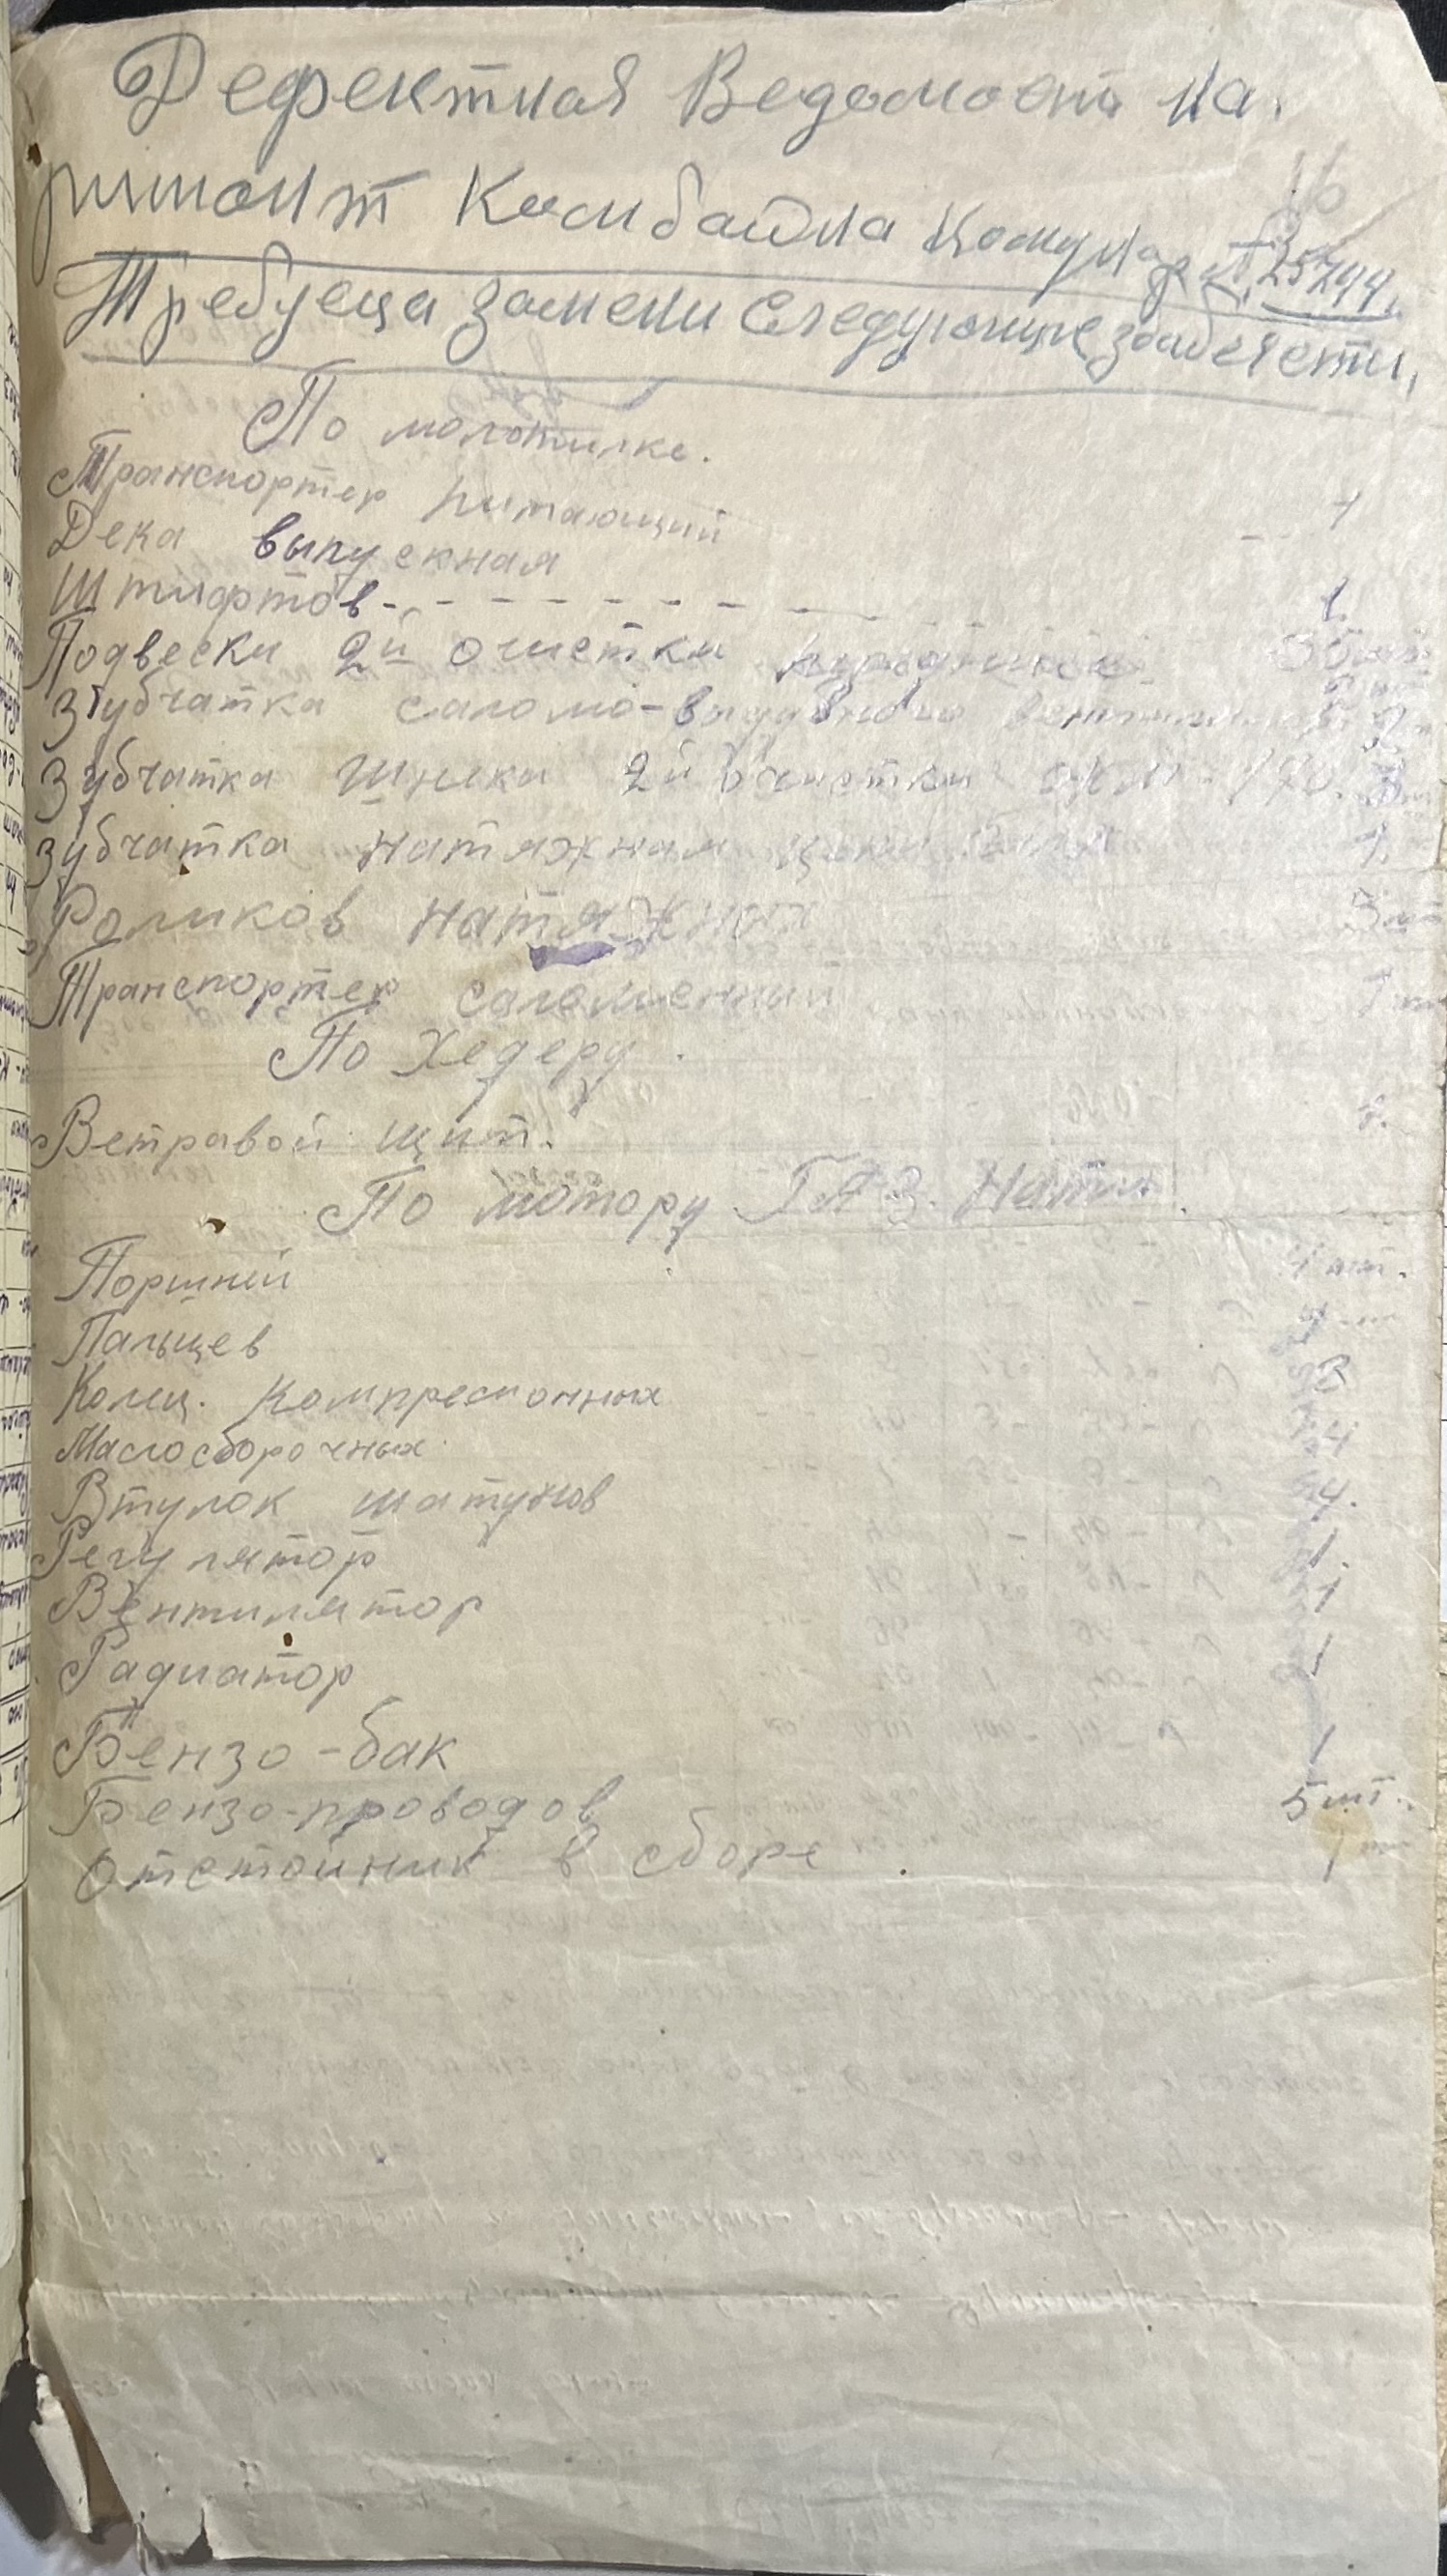 Дефектная Ведомость на
римонт Комбайна Комунар № 25744.
Требуеца замени Следующие запчести,
По молотилке.
Транспортер питающий 1
Дека выпускная
Штифтов - - - - - - - - 1
Подвески 2й очистки
Зубчатка саломо-
Зубчатка Шнека 2й очистки
Зубчатка натяжная цепи 1
Роликов натяжных 3 шт
Транспортер саломенный 1 шт
По Хедеру.
Ветравой щит. 1.
По мотору ГАЗ. Нати
Поршней 4 шт.
Пальцев 4
Колец. Компресионных
Маслосборочных 4
Втулок шатунов 4.
Регулятор 1.
Вентилятор 1
Радиатор 1
Бензо-бак 1
Бензо-проводов 5 шт.
Отстойник в сборе 1 шт